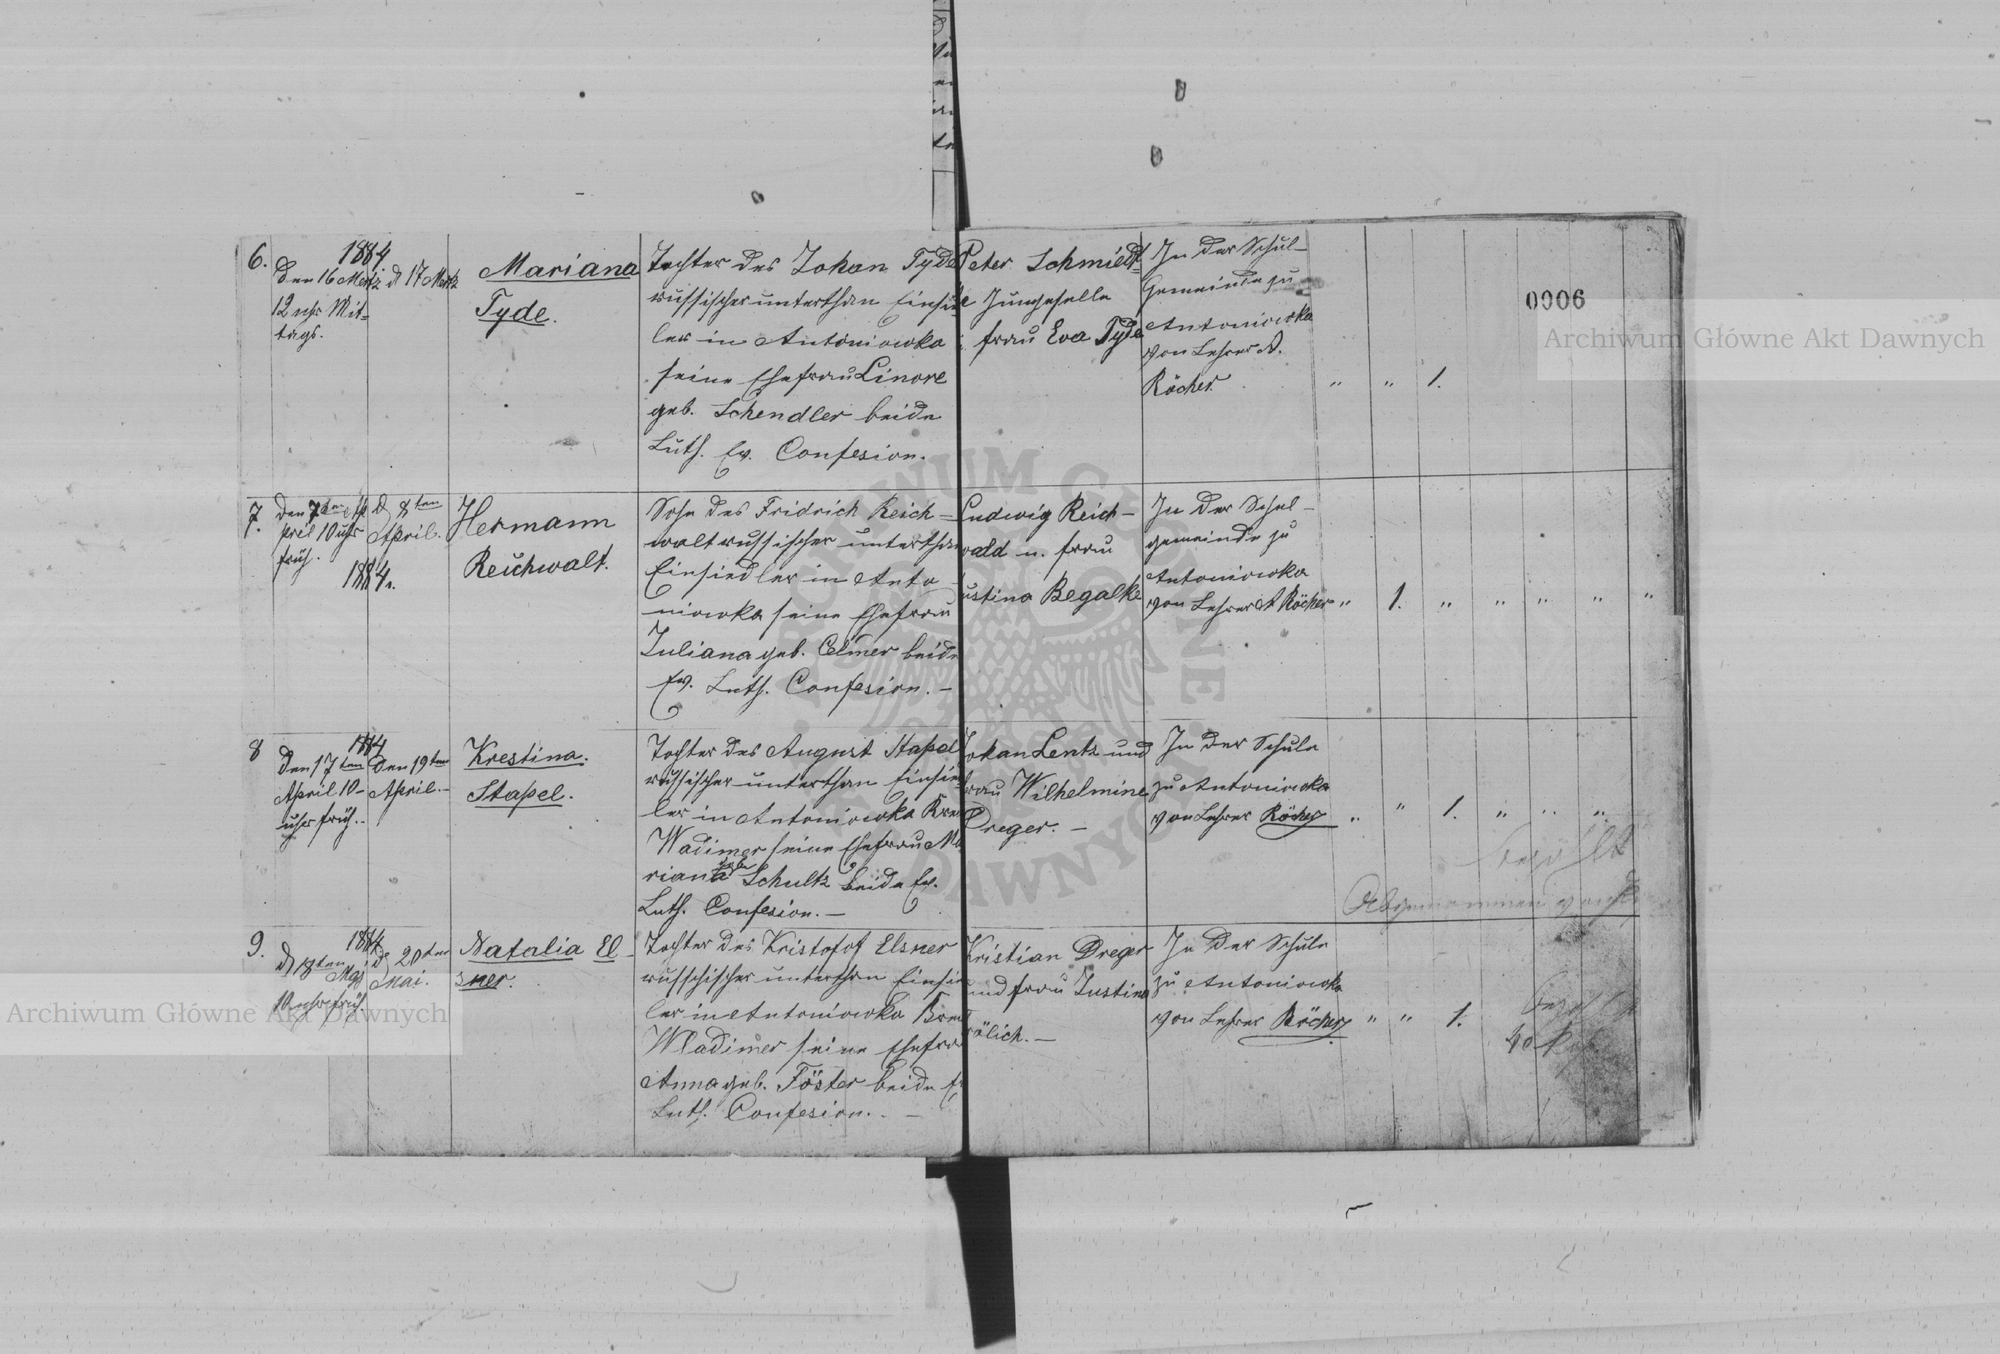 0006
Archiwum Główne Akt Dawnych
6.
1884
den 16 Merz
12 uhr Mit=
tags.
d 17 Merz
Mariana
Tyde.
Tochter des Johan Tyde
russischer unterthan Einsied
ler in Antoniowka
seine Ehefrau Linore
geb. Schendler beide
Luth. Ev. Confesion.
Peter Schmiedt
Jungeselle
frau Eva Tyde
In der Schul-
Gemeinde zu
Antoniowka
von Lehrer A.
Röcher.
" " 1.
7.
den 7ten Ap
pril 10 uhr
früh.
1884.
d 8ten
April.
Hermann
Reichwalt.
Sohn des Fridrich Reich-
walt russischer unterthan
Einsiedler in Anto
niowka seine Ehefrau
Juliana geb. Celmer beide
Ev. Luth. Confesion. -
Ludwig Reich-
wald u. frau
ustina Begalke
In der Schul-
gemeinde zu
Antoniowka
von Lehrer A Röcher
" 1. " " " " "
8
1884
den 17ten
April 10-
uhr früh.
den 19ten
April.
Krestina.
Stapel.
Tochter des August Stapel
russischer unterthan Einsied
ler in Antoniowka Krei
Wadimer seine Ehefrau Ma
riana geb. Schultz beide Ev.
Luth. Confesion. -
Johan Lentz und
frau Wilhelmine
Dreger. -
In der Schule
zu Antoniowka
von Lehrer Röcher
" " 1. " " "
bezahlt
Abgenommen
9.
1884
d 18ten Mai
10 uhr früh.
d 20ten
Mai.
Natalia El-
sner.
Tochter des Kristofof Elsner
russchischer unterthan Einsied
ler in Antoniowka Krei
Wladimer seine Ehefrau
Anna geb. Föster beide Ev
Luth. Confesion. -
Kristian Dreger
und frau Justina
rölich. -
In der Schule
zu Antoniowka
von Lehrer Röcher
" " 1.
Archiwum Główne Akt Dawnych
ARCHIWUM GŁÓWNE
AKT DAWNYCH